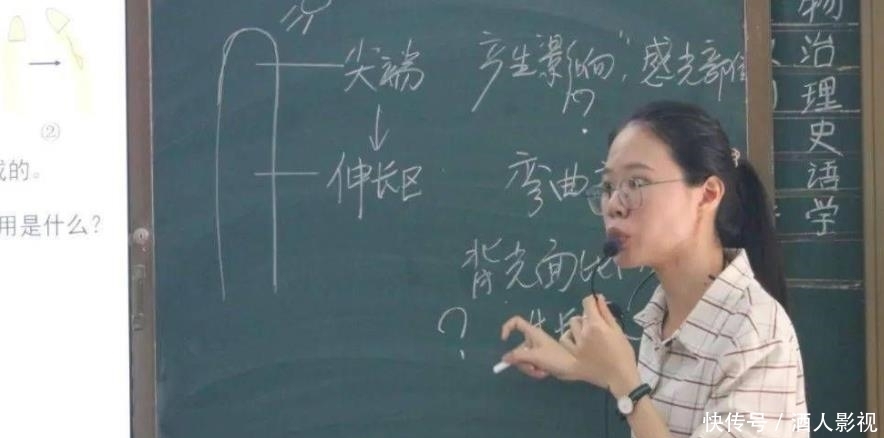 ②
成的。
用是什么?
尖端 产生"影响",感光部位
?
↓
伸长区 弯曲
背光面比
? 生长
物
治
理
史
语
学
快传号/酒人影视